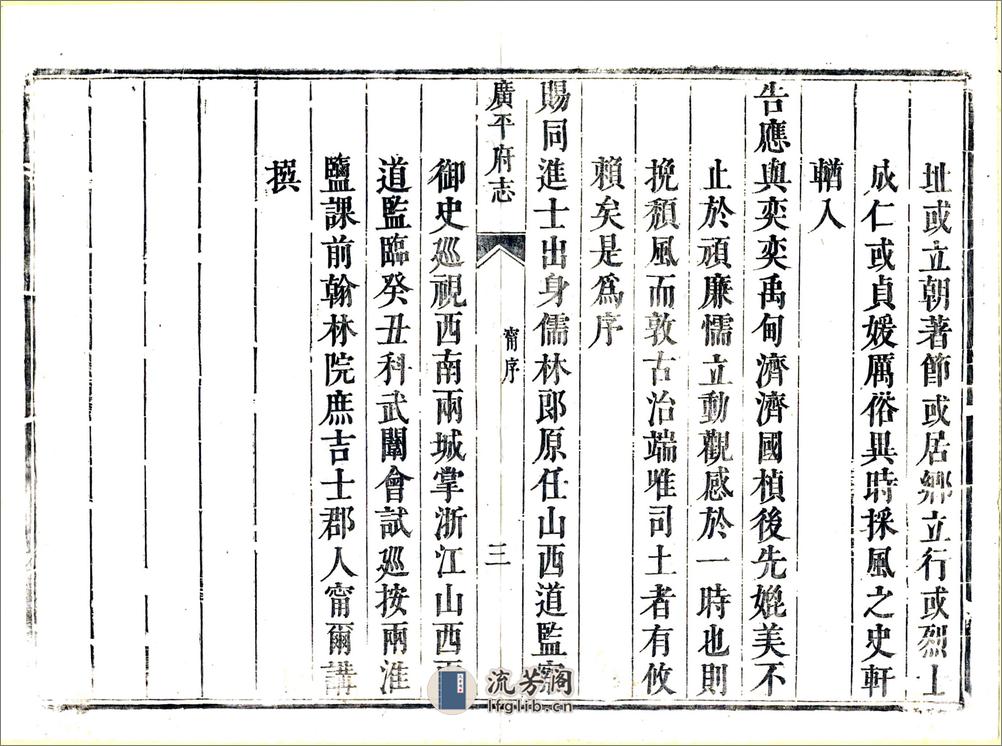 址或立朝著節或居鄉立行或烈士
成仁或貞媛厲俗異時採風之史軒
輶入
告應與奕奕禹甸濟濟國楨後先媲美不
止於頑廉懦立動觀感於一時也則
挽頹風而敦古治端唯司土者有攸
賴矣是爲序
賜同進士出身儒林郎原任山西道監察
廣平府志
甯序
三
御史廵視西南兩城掌浙江山西
道監臨癸丑科武闈會試廵按兩淮
鹽課前翰林院庶吉士郡人甯爾講
撰
流芳閣
lfglib.cn